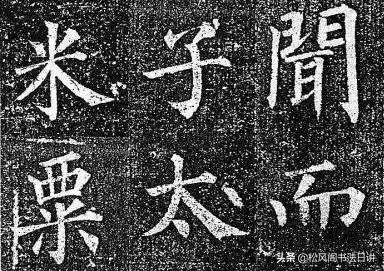 聞而
子太
米粟
头条 @松风阁书法日讲